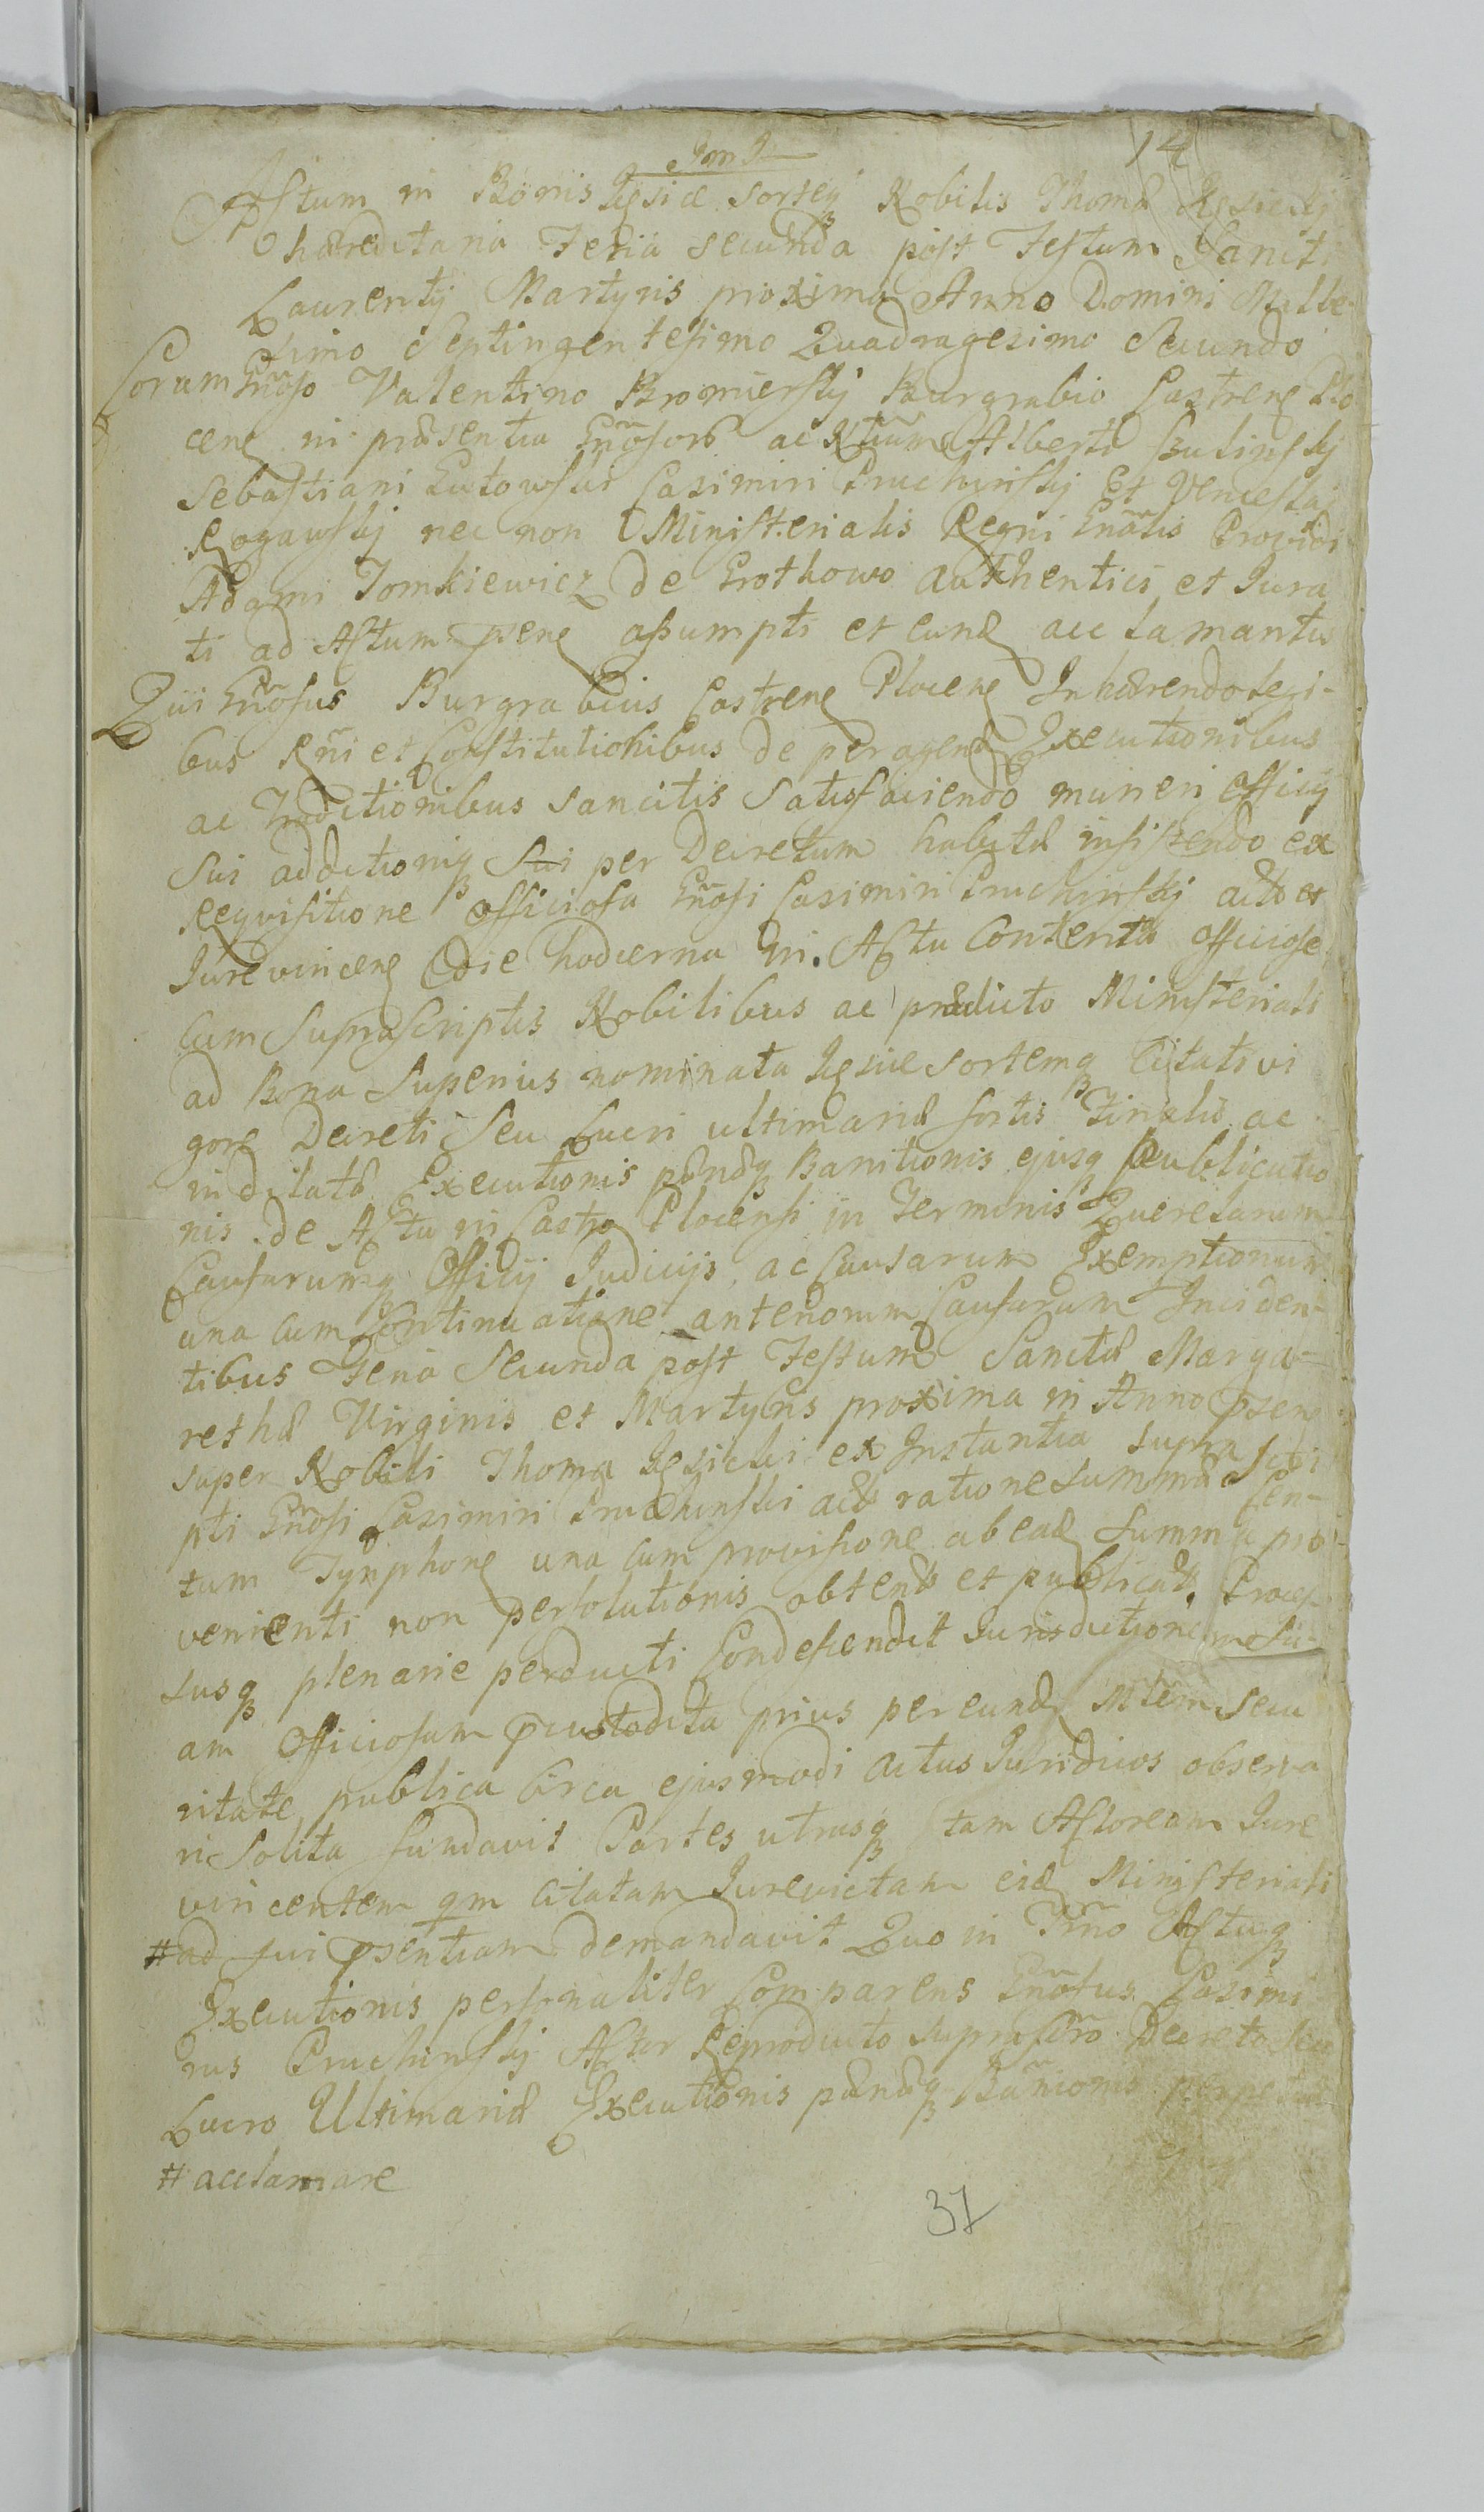 14
Actum in Bonis sorteq Nobilis Thomæ
hæreditaria Feria secunda post Festum Sancti
Laurentij Martyris proxima Anno Domini Mille-
simo Septingentesimo Quadragesimo Secundo
Coram Gnoso Valentino Bromierskj Burgrabio Castren Plo
cen in præsentia Gnosor ac Nlium Alberti Bulinskj
Sebastiani Gutowski Casimiri Pruchinskj et Venceslaj
Rogawskj nec non Ministerialis Regni Gnalis Providi
Adami Tomkiewicz de Grothowo authentici et Jura
ti ad Actum psene assumpti et eund acclamantis
Qui Gnosus Burgrabius Castren Plocen Inhærendo legi-
bus Rni et Constitutionibus de peragend Executionibus
ac Traditionibus sancitis satisfaciendo muneri Officij
sui addictioniq sui per Decretum habitæ insistendo ex
Requisitione Officiosa Gnosi Casimiri Pruchinskj act et
Jurevincen die hodierna in Actu Contenta Officiose
Cum Suprascriptis Nobilibus ac prædicto Ministeriali
ad Bona Superius nominata sortemq Citati vi
gore Decreti seu Lucri ultimariæ sortis Finalis ac
indilatæ Executionis pænæq Banitionis ejusq Publicatio
nis de Actu in Castro Plocensi in Terminis Querelarum
Causarumq Officij Judicijs, ac Causarum Exemptionum
una cum Continuatione anteriorum Causarum Inciden-
tibus Feria Secunda post Festum Sanctæ Marga-
rethæ Virginis et Martyris proxima in Anno psen
super Nobili Thoma ex Instantia supra scri
pti Gnosi Casimiri Pruchinski act ratione summæ Cen-
tum Tynphone una cum provisione ab ead Summa pro
venienti non persolutionis obtent et publicat Proces-
susq plenarie perducti Condescendit Jurisdictionemq su-
am Officiosam pcustodita prius per eund Mlem secu
ritate publica circa ejusmodi actus Juridicos observa
ri solita fundavit Partes utrasq tam Actoream Jure
vincentem qm Citatam Jurevictam eid Ministeriali
#ad sui psentiam demandavit Quo in Trno Actuq
Executionis personaliter Comparens Gnosus Casimi
rus Pruchinskj Actor Reproducto suprascro Decreto seu
Lucro Ultimariæ Executionis pænæq Banionis perpetuæ
# acclamare
37